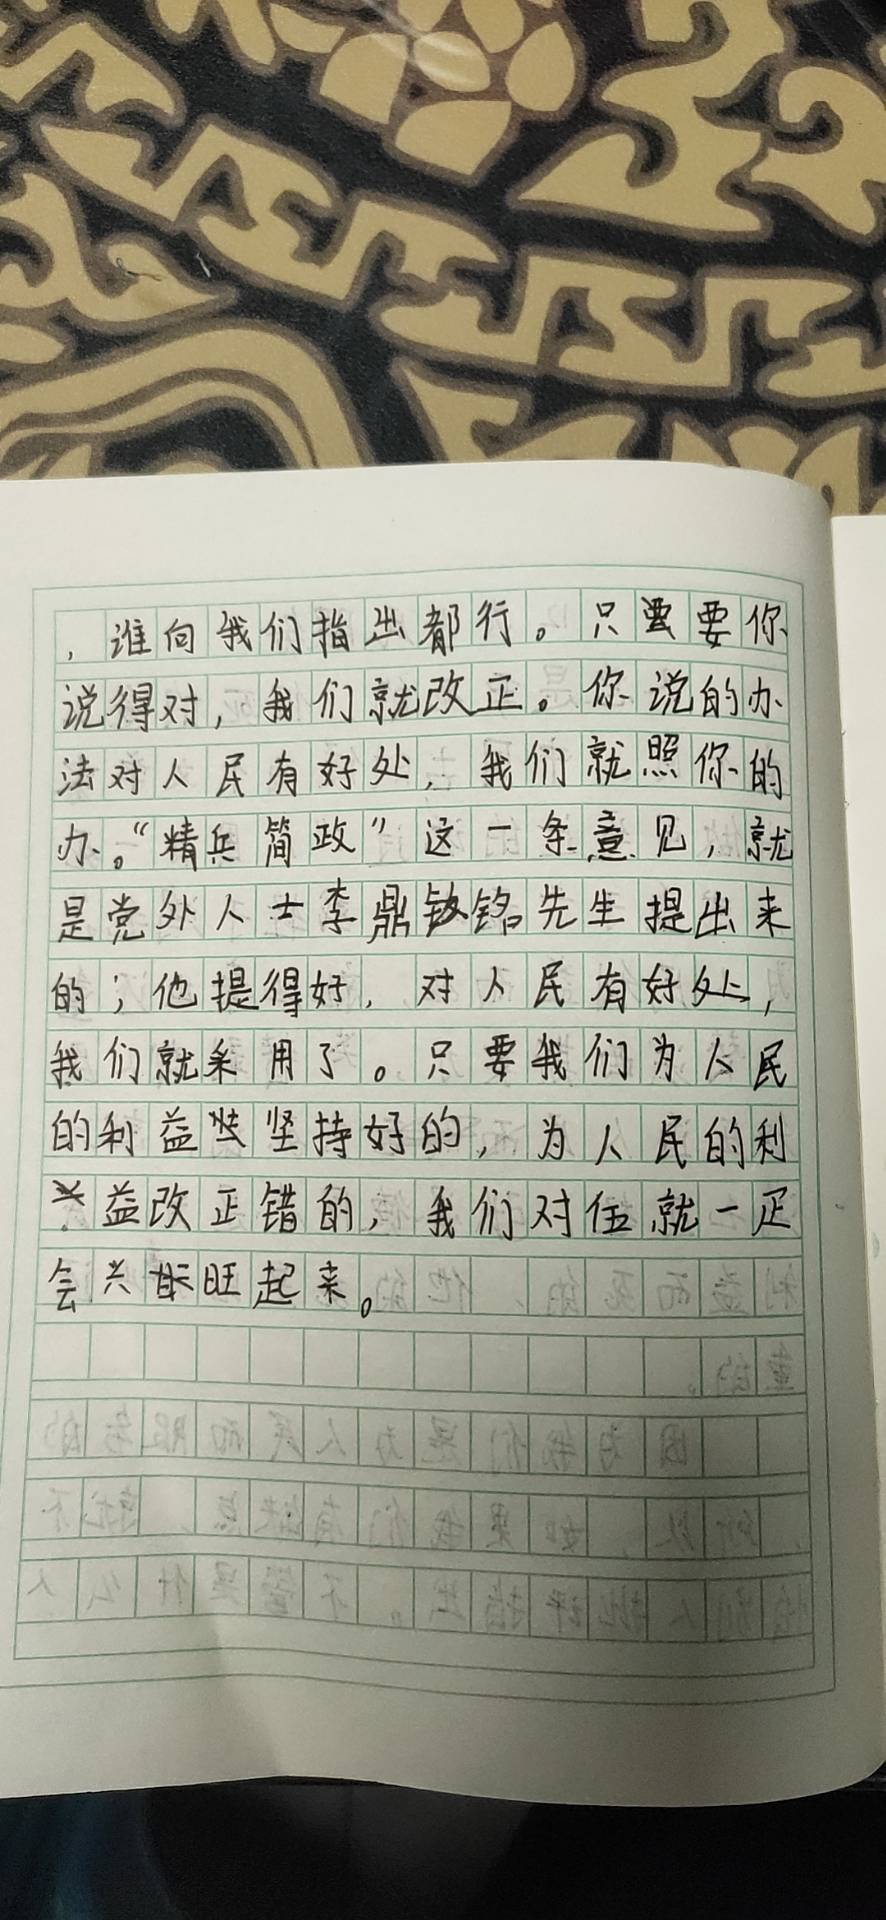 ，谁向我们指出都行。只要你
说得对，我们就改正。你说的办
法对人民有好处，我们就照你的
办。“精兵简政”这一条意见，就
是党外人士李鼎铭先生提出来
的；他提得好，对人民有好处，
我们就采用了。只要我们为人民
的利益坚持好的，为人民的利
益改正错的，我们对伍就一定
会兴旺起来。